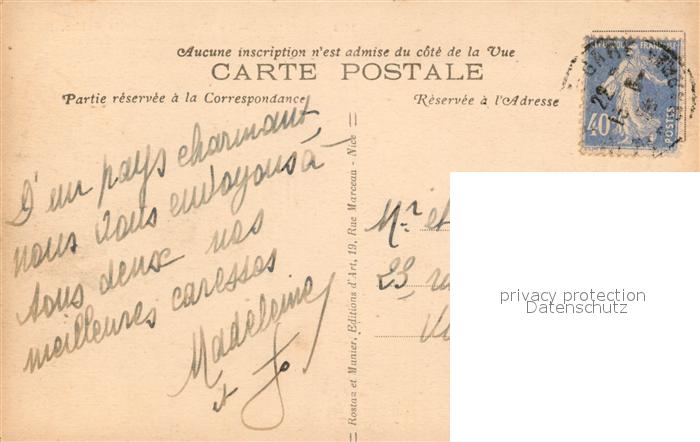 Aucune inscription n'est admise du côté de la Vue
CARTE POSTALE
Partie réservée à la Correspondance
Réservée à l'Adresse
RÉPUBLIQUE FRANÇAISE
40
POSTES
GARE
22
D'un pays charmant,
nous vous envoyons à
tous deux nos
meilleures caresses
Madeleine
et Jo
Rostaz et Munier, Editions d'Art, 19, Rue Marceau - Nice
Mr et
23,
privacy protection
Datenschutz